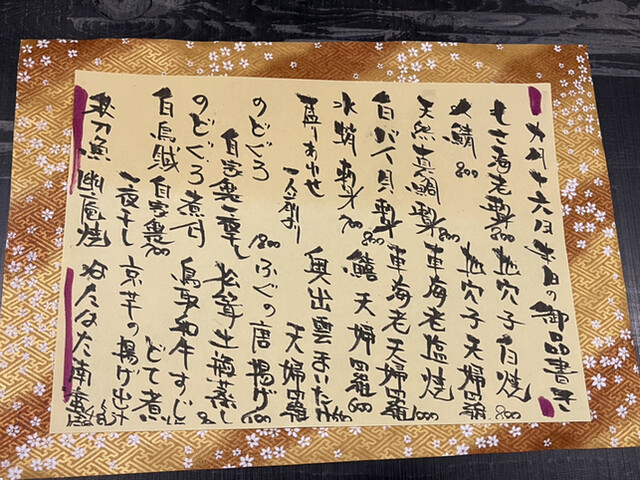 九月十六日 本日の御品書き
もさ海老刺身 800
〆鯖 800
天然真鯛刺身 800
白バイ貝刺身 800
水蛸刺身 700
盛りあわせ
一人前より
のどぐろ
自家製一夜干し 1800
のどぐろ煮付
白烏賊自家製 700
一夜干し
刀魚幽庵焼
地穴子白焼 800
地穴子天婦羅
車海老塩焼 1000
車海老天婦羅
鱚天婦羅 600
奥出雲まいたけ
天婦羅
ふぐの唐揚げ
松茸土瓶蒸し
鳥取和牛すじ
どて煮
京芋の揚げ出汁
はたはた南蛮漬